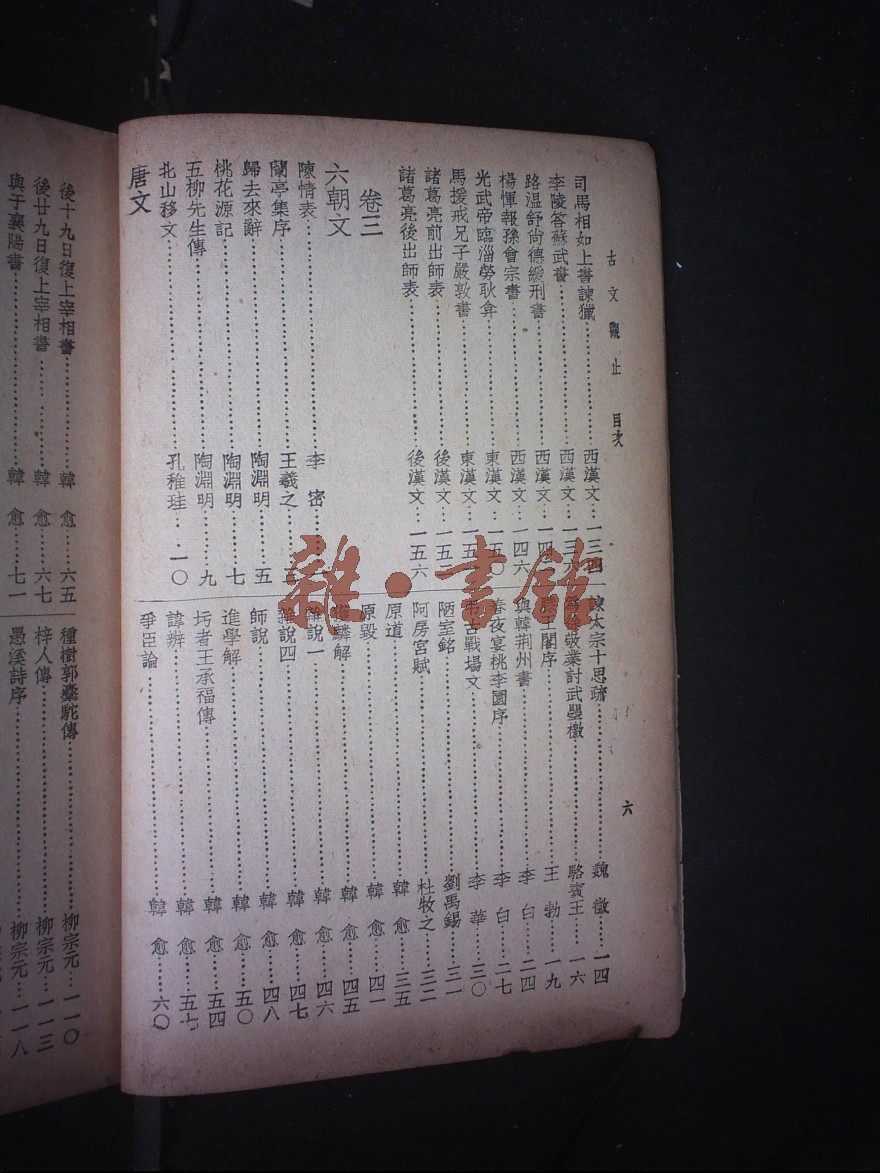 古文觀止 目次 六
司馬相如上書諫獵……西漢文…一三四
李陵答蘇武書……西漢文…一三六
路溫舒尚德緩刑書……西漢文…一四二
楊惲報孫會宗書……西漢文…一四六
光武帝臨淄勞耿弇……東漢文…一五〇
馬援戒兄子嚴敦書……東漢文…一五一
諸葛亮前出師表……後漢文…一五二
諸葛亮後出師表……後漢文…一五六
卷三
六朝文
陳情表……李密……
蘭亭集序……王羲之…三
歸去來辭……陶淵明…五
桃花源記……陶淵明…七
五柳先生傳……陶淵明…九
北山移文……孔稚珪…一〇
唐文
諫太宗十思疏……魏徵……一四
徐敬業討武曌檄……駱賓王…一六
王閣序……王勃……一九
與韓荊州書……李白……二四
春夜宴桃李園序……李白……二七
弔古戰場文……李華……三〇
陋室銘……劉禹錫…三一
阿房宮賦……杜牧之…三二
原道……韓愈……三五
原毀……韓愈……四一
獲麟解……韓愈……四五
雜說一……韓愈……四六
雜說四……韓愈……四七
師說……韓愈……四八
進學解……韓愈……五〇
圬者王承福傳……韓愈……五四
諱辨……韓愈……五七
爭臣論……韓愈……六〇
後十九日復上宰相書……韓愈……六五
後廿九日復上宰相書……韓愈……六七
與于襄陽書……韓愈……七一
種樹郭橐駝傳……柳宗元…一一〇
梓人傳……柳宗元…一一三
愚溪詩序……柳宗元…一一八
雜·書館